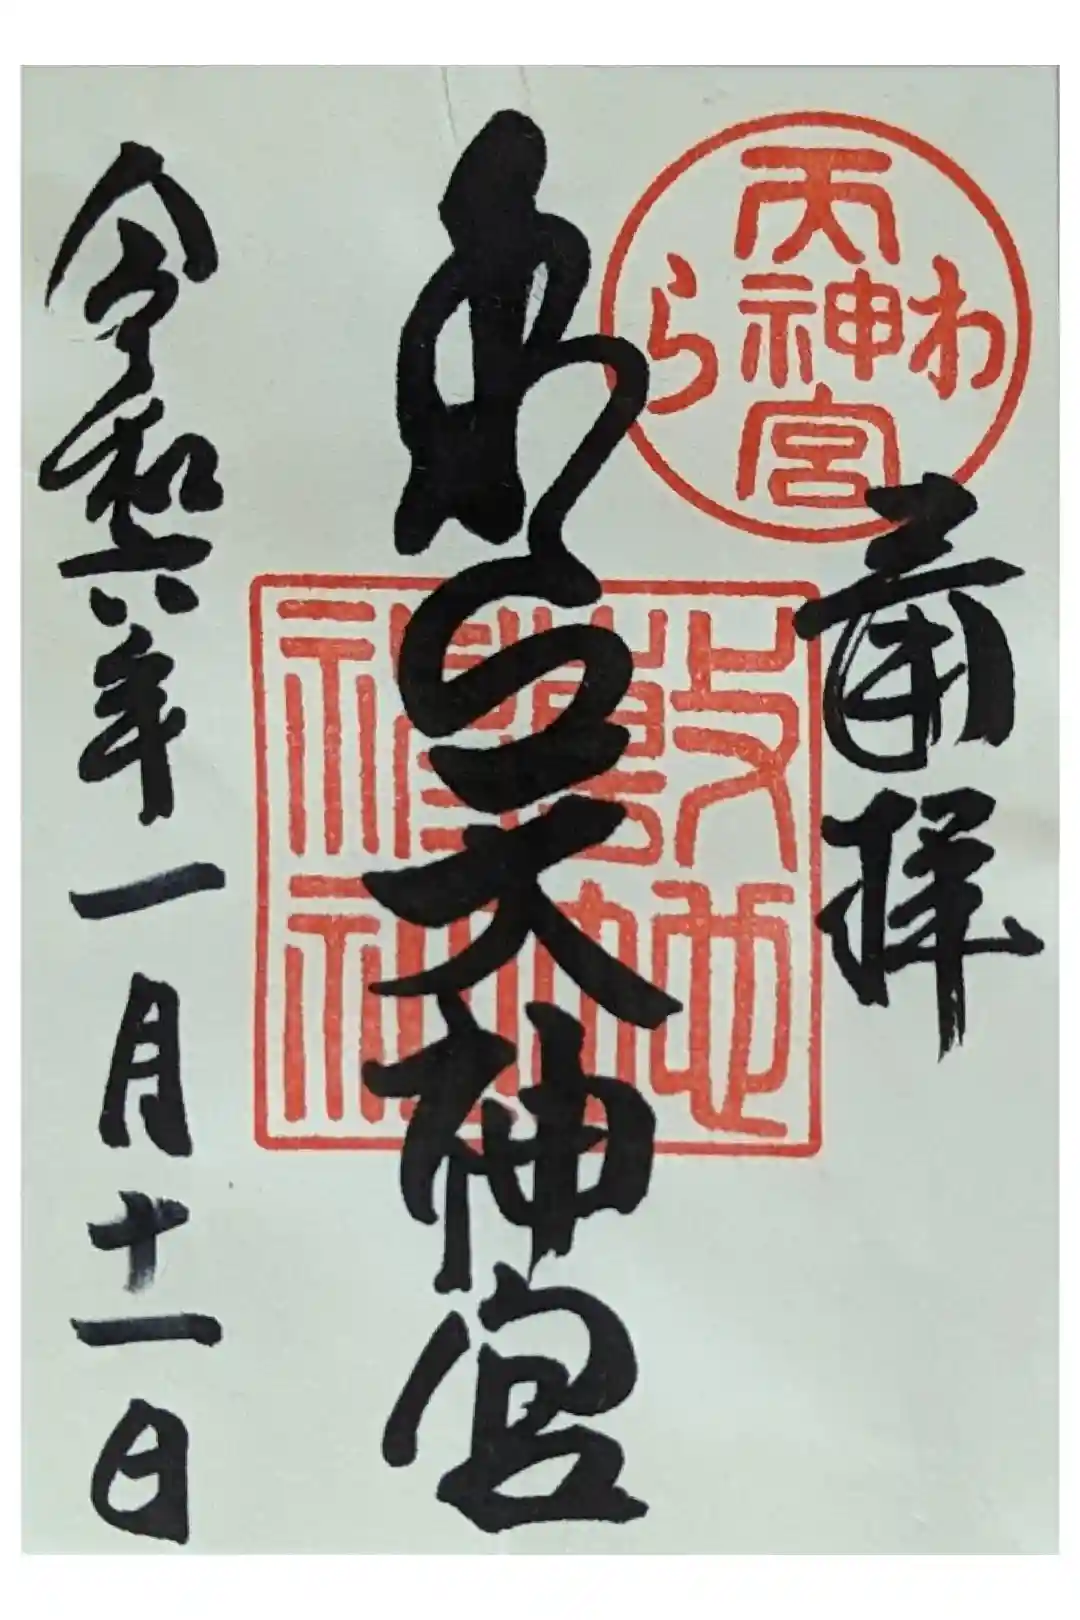 奉拝
わら天神宮
令和六年一月十一日
わら
天神宮
敷地
神社